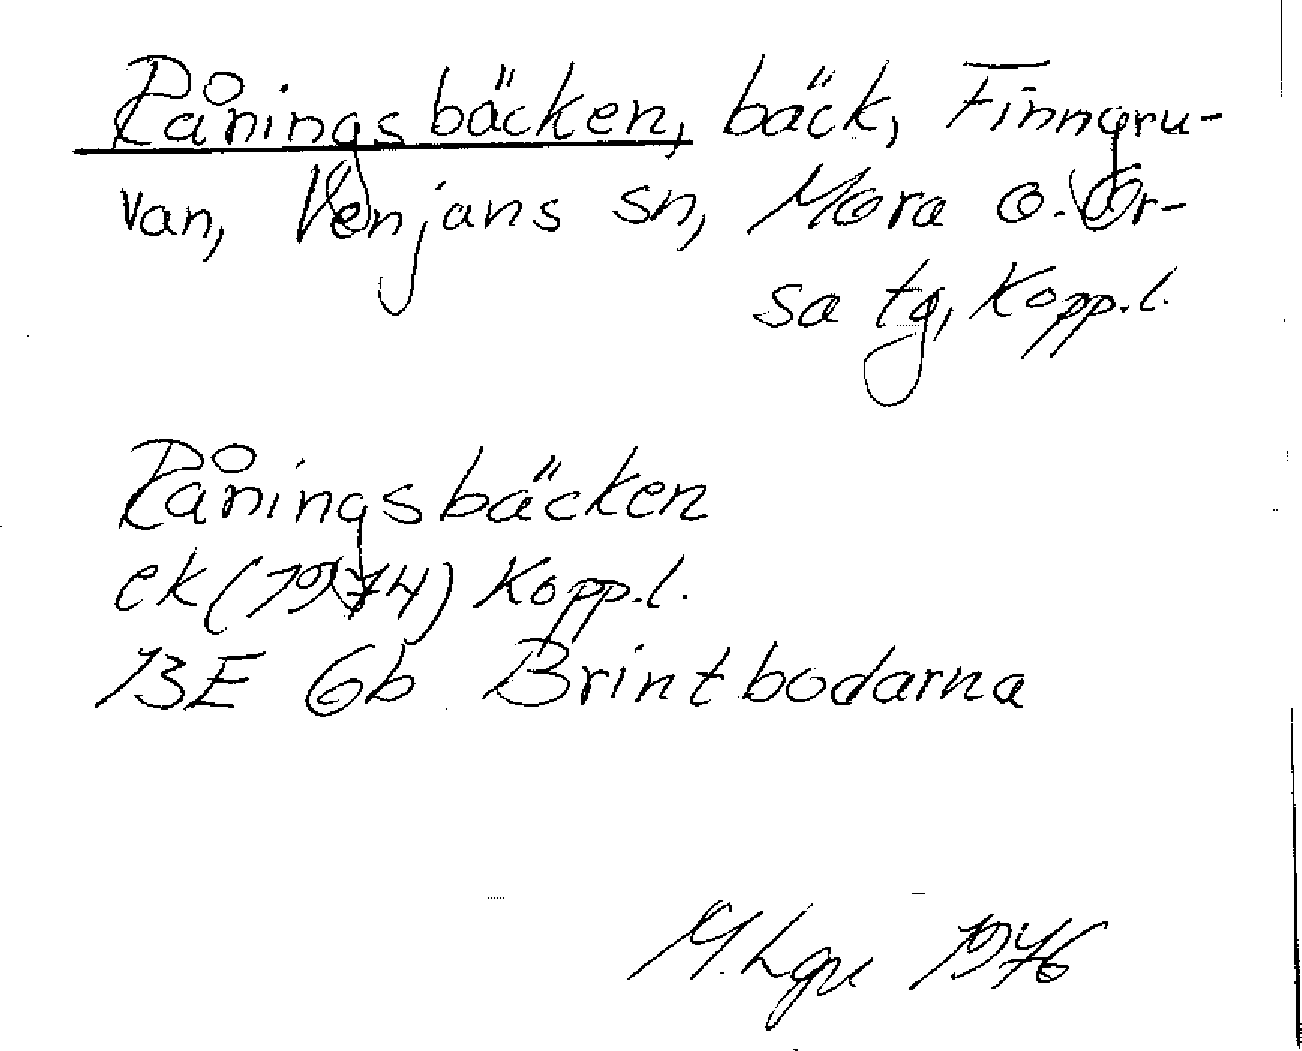 Råningsbäcken, bäck, Finngru-
van, Venjans sn, Mora o. Or-
sa tg, Kopp.l.
Råningsbäcken
ek (1974) Kopp.l.
13E 6b Brintbodarna
M. Lgn 1976